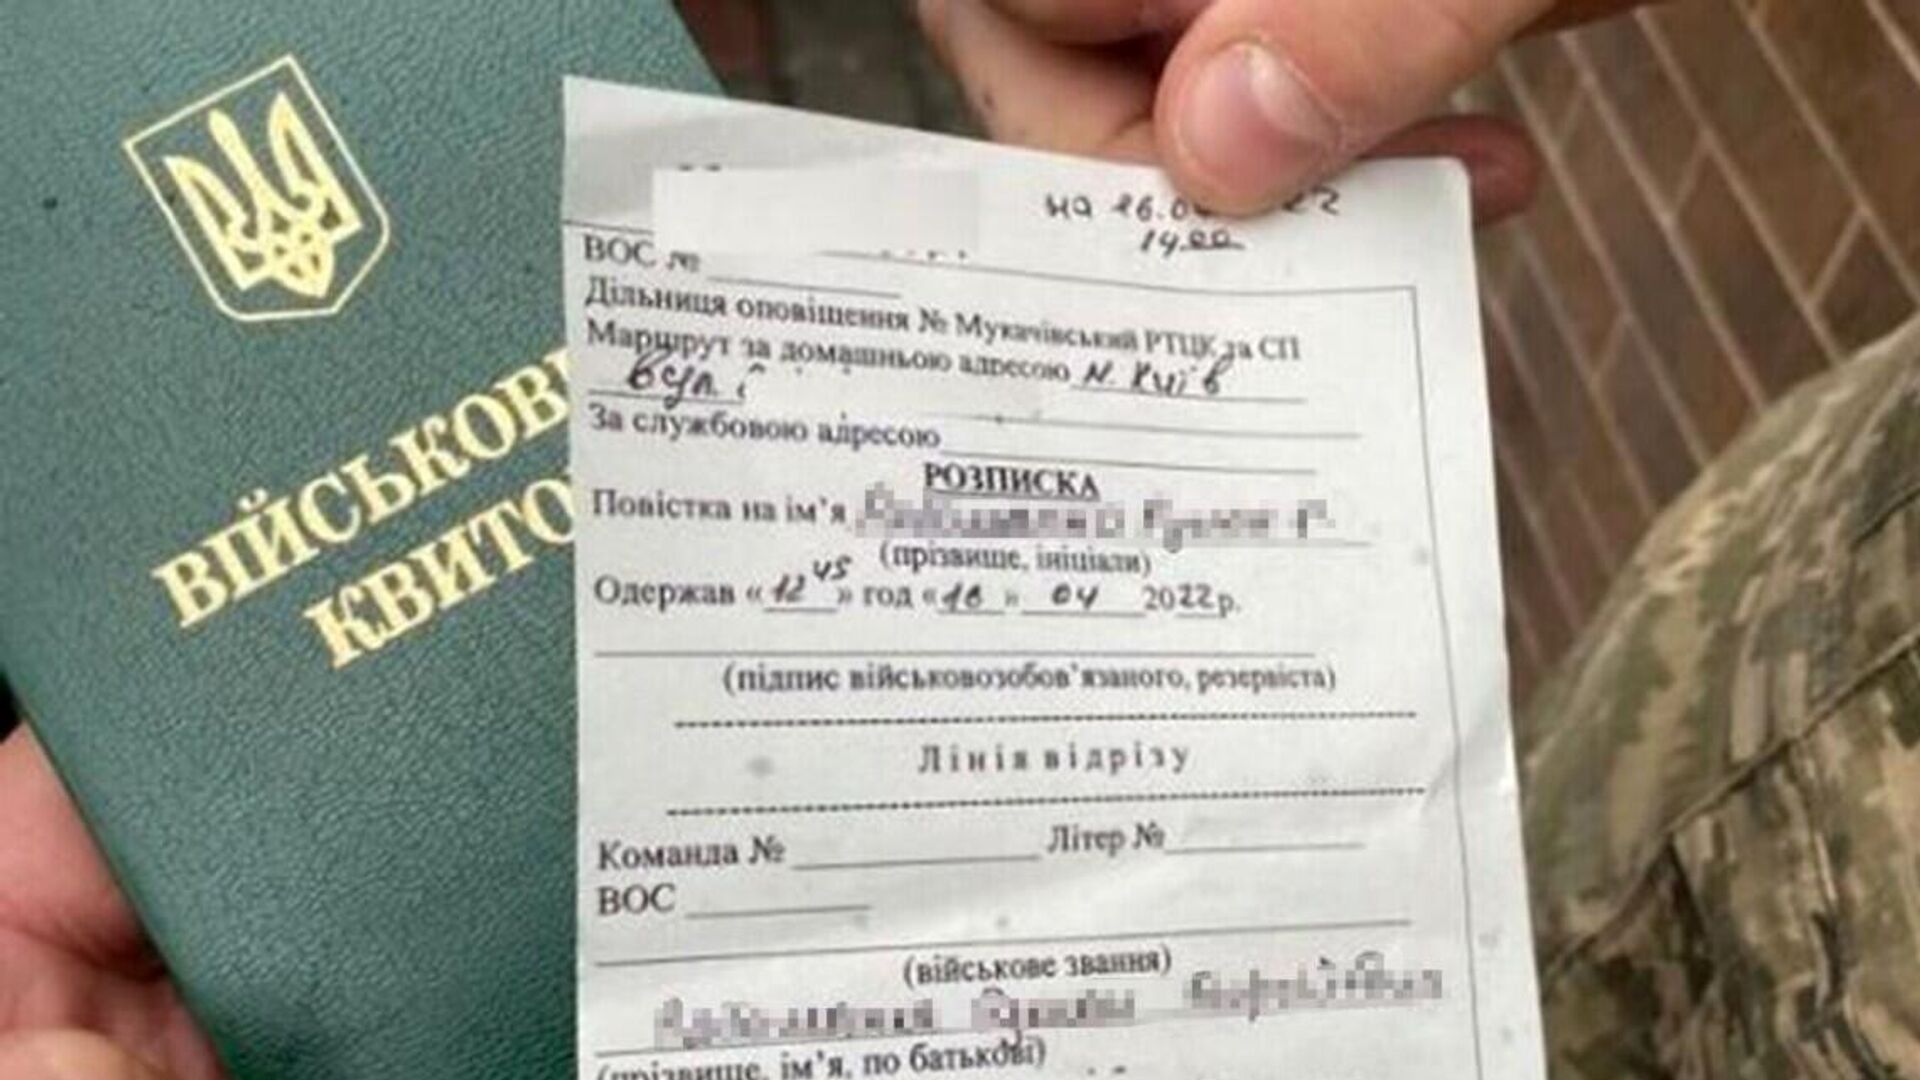 ВІЙСЬКОВ
КВИТО
на 26.0
22
14.00
ВОС №
Дільниця оповіщення № Мукачівський РТЦК та СП
Маршрут за домашньою адресою м. Київ
вул
За службовою адресою
РОЗПИСКА
Повістка на ім’я
(прізвище, ініціали)
Одержав «12 45» год «16» 04 2022 р.
(підпис військовозобов’язаного, резервіста)
Лінія відрізу
Команда № Літер №
ВОС
(військове звання)
(прізвище, ім’я, по батькові)